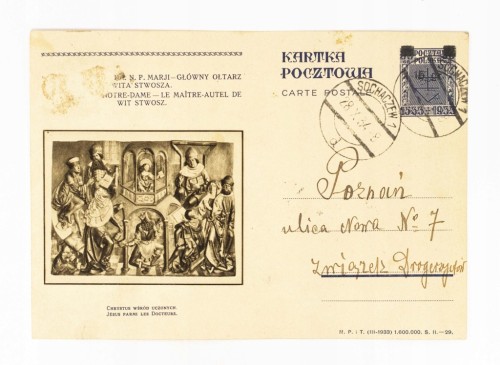 N. P. MARJI — GŁÓWNY OŁTARZ
WITA STWOSZA.
NOTRE-DAME — LE MAÎTRE-AUTEL DE
WIT STWOSZ.
KARTKA
POCZTOWA
CARTE POSTALE
POCZTA
POLSKA
1533-1933
SOCHACZEW 1
SOCHACZEW 1
Poznań
ulica Nowa No 7
Związek Drogerzystów
CHRYSTUS WŚRÓD UCZONYCH.
JÉSUS PARMI LES DOCTEURS.
M. P. i T. (III-1933) 1.000.000. S. II.—29.